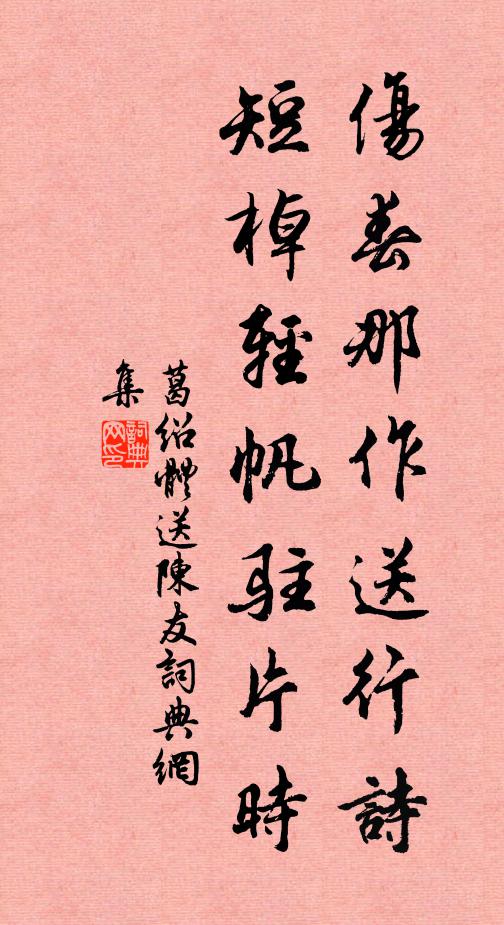 傷春那作送行詩
短棹輕帆駐片時
葛紹體送陳友詞典網
集
詞典網印